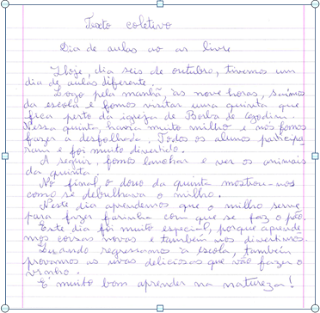 Texto coletivo
Dia de aulas ao ar livre
Hoje, dia seis de outubro, tivemos um
dia de aulas diferente.
Logo pela manhã, às nove horas, saímos
da escola e fomos visitar uma quinta que
fica perto da igreja de Borba de Godim.
Nessa quinta, havia muito milho e nós fomos
fazer a desfolhada. Todos os alunos participa-
ram e foi muito divertido.
A seguir, fomos lanchar e ver os animais
da quinta.
No final, o dono da quinta mostrou-nos
como se debulhava o milho.
Neste dia aprendemos que o milho serve
para fazer farinha com que se faz o pão.
Este dia foi muito especial, porque aprende-
mos coisas novas e também nos divertimos.
Quando regressamos à escola, também
provamos as uvas deliciosas que vão fazer o
vinho.
É muito bom aprender na natureza!